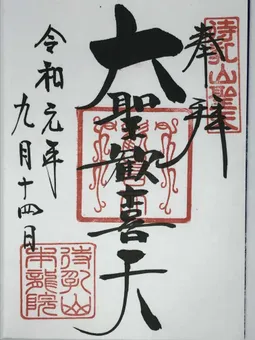 待乳山聖天
奉拝
大聖歡喜天
令和元年
九月十四日
待乳山
本龍院